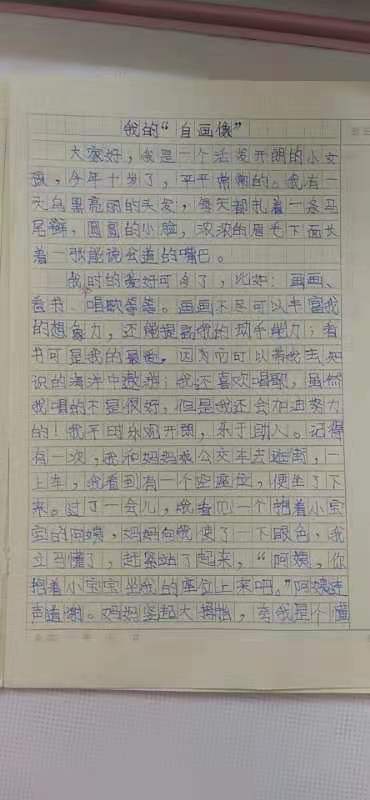 我的“自画像”
大家好，我是一个活泼开朗的小女
孩，今年十岁了，平平常常的。我有一
头乌黑亮丽的头发，每天都扎着一条马
尾辫，圆圆的小脸，浓浓的眉毛下面长
着一张能说会道的嘴巴。
我的爱好可多了，比如：画画、
看书、唱歌等等。画画不但可以丰富我
的想象力，还能提高我的动手能力；看
书可是我的最爱，因为它可以带我去知
识的海洋中遨游；我还喜欢唱歌，虽然
我唱的不是很好，但是我还会加油努力
的！我平时乐观开朗，乐于助人。记得
有一次，我和妈妈乘公交车去逛街，一
上车，我看到有一个空座位，便坐了下
来。过了一会儿，我看见一个抱着小宝
宝的阿姨，妈妈向我使了一下眼色，我
立马懂了，赶紧站了起来，“阿姨，你
抱着小宝宝坐我的座位上来吧。”阿姨连
声道谢。妈妈竖起大拇指，夸我是个懂